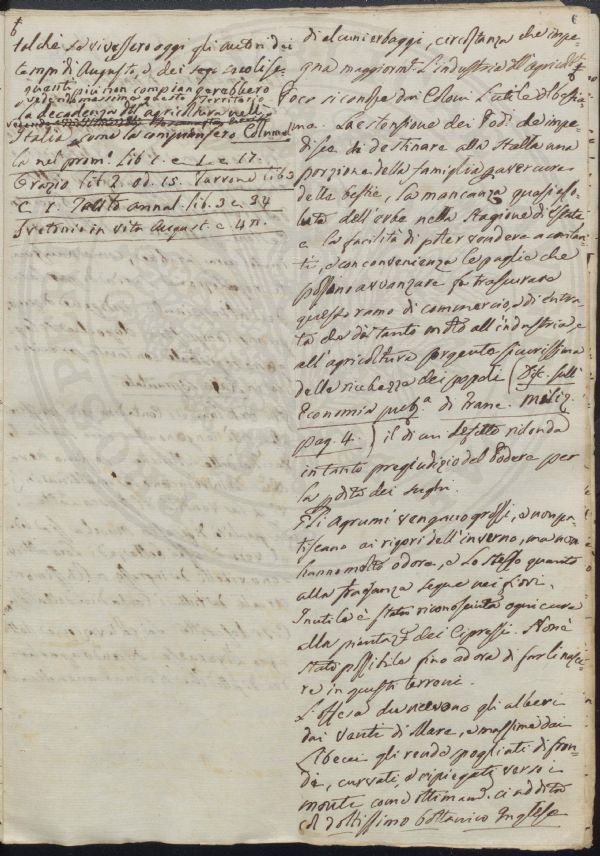 6
talchè se vivessero oggi gli autori dei
tempi di Augusto, e dei seg. secoli se-
quenti più non compiangerebbero
e vedendo massime questo Territorio
la decadenza dell'agricoltura nella
Italia, come la compiansero Columel
la nel proem. Lib. 1. e 1. e 17.
Orazio lib 2. od. 15. Varrone lib 3
C. 1. Tacito annal. lib. 3 e 54
Svetonio in vita August. c. 42.
6
di alcuni erbaggi, circostanza che impe-
gna maggiorm. L'industria all'agricolt.
Poco si conosce dai Coloni l'utile del bestia
me. La estensione dei Pod. che impe-
disce di destinare alla stalla una
porzione della famiglia per aver cura
delle bestie, la mancanza quasi asso-
luta dell'erbe nella stagione di Estate
e la facilità di poter vendere a contan-
ti, e con convenienza le paglie che
possono avanzare fa trascurare
questo ramo di commercio, e di entra-
ta che dà tanto moto all'industria, e
all'agricoltura sorgente sicurissima
della ricchezza dei popoli (Dis. sull'
Economia pub.ª di Franc. Meliz.
pag. 4.) il di cui difetto ridonda
in tanto pregiudizio del Podere per
la pdita dei sughi.
Gli agrumi vengono grossi, e non pa-
tiscano ai rigori dell'inverno, ma non
hanno molto odore, e lo stesso quanto
alla fraganza segue nei fiori.
Inutile è stata riconosciuta ogni cura
alla piantaz. dei Cipressi. Non è
stato possibile fino ad ora di farli nasce-
re in questi terreni.
L'offesa che ricevono gli alberi
dai Venti di Mare, e massime dai
Libecci gli rende spogliati di fron-
di, curvati, e ripiegati verso i
monti come ottimam. ci addita
il dottissimo bottanico Inglese